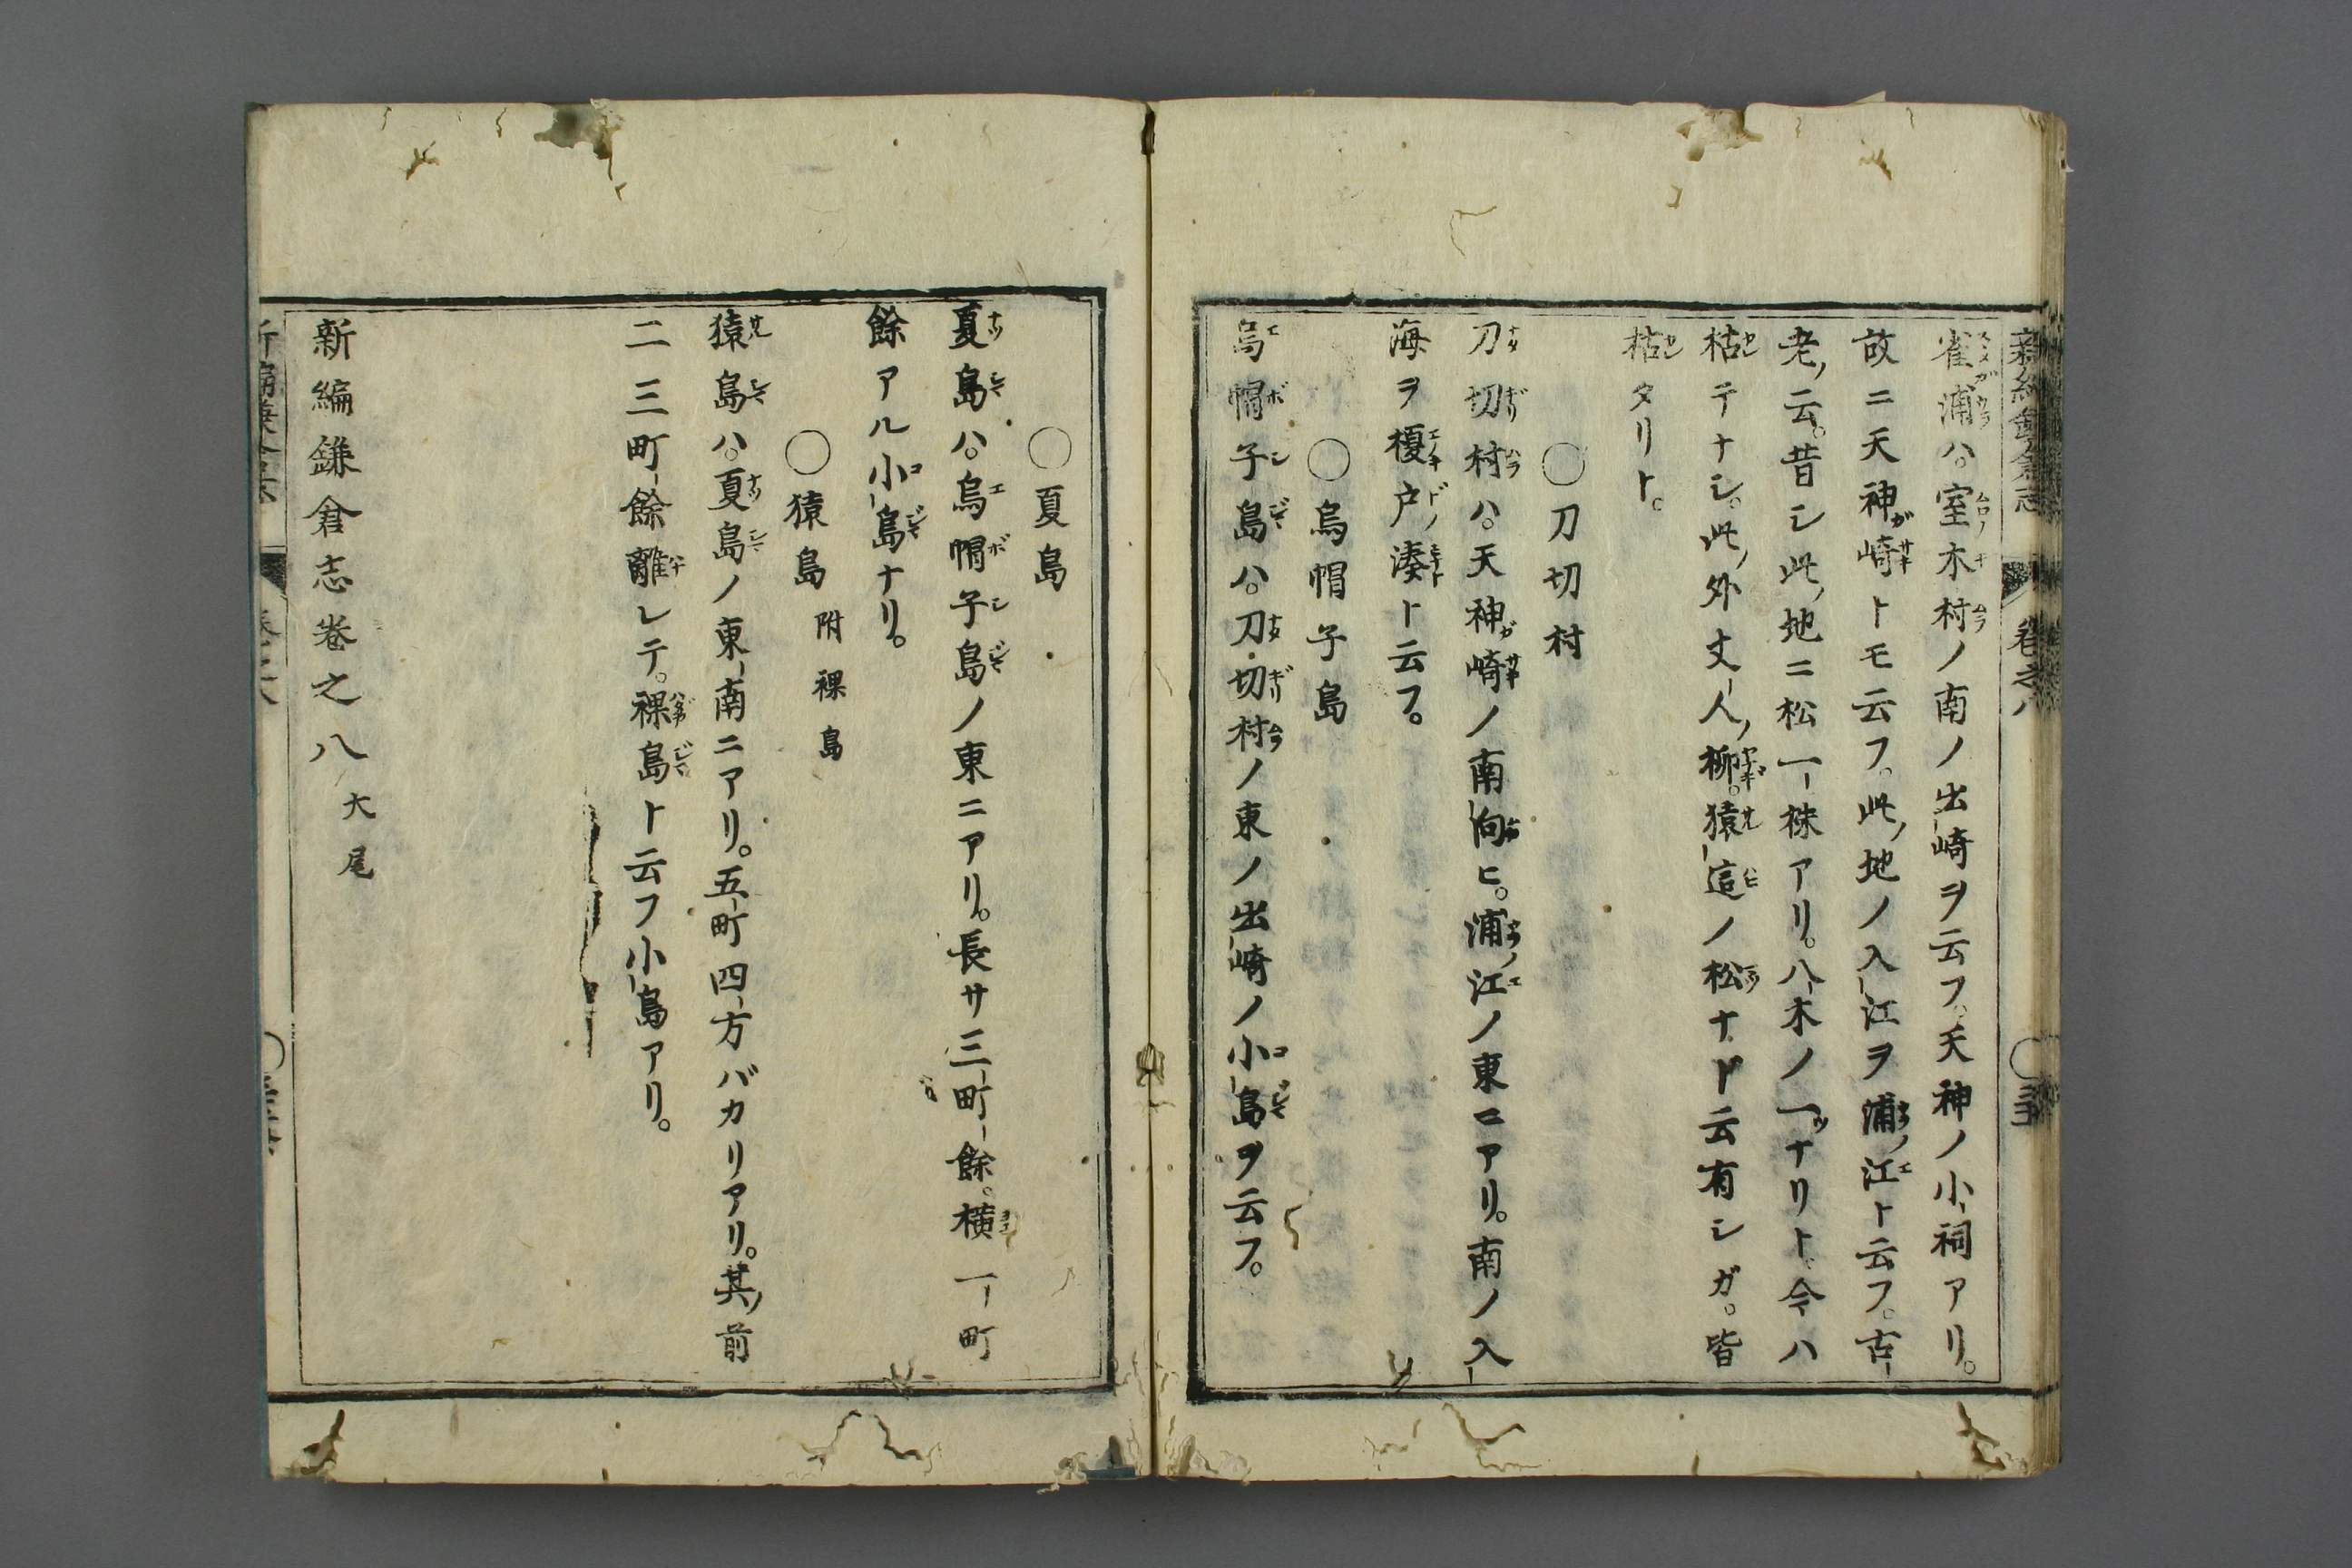 新編鎌倉志 卷之八
雀浦ハ。室木村ノ南ノ出崎ヲ云フ。天神ノ小祠アリ。
故ニ天神崎トモ云フ。此ノ地ノ入江ヲ浦ノ江ト云フ。古
老ノ云。昔シ此ノ地ニ松一株アリ。八木ノ一ツナリト。今ハ
枯テナシ。此ノ外丈人ノ柳。猿這ノ松ナド云有シガ。皆
枯タリト。
〇刀切村
刀切村ハ。天神崎ノ南向ヒ。浦ノ江ノ東ニアリ。南ノ入
海ヲ榎戸ノ湊ト云フ。
〇烏帽子島
烏帽子島ハ。刀切村ノ東ノ出崎ノ小島ヲ云フ。
〇夏島
夏島ハ。烏帽子島ノ東ニアリ。長サ三町餘。横一町
餘アル小島ナリ。
〇猿島 附裸島
猿島ハ。夏島ノ東南ニアリ。五町四方バカリアリ。其ノ前
二三町餘離レテ。裸島ト云フ小島アリ。
新編鎌倉志卷之八 大尾